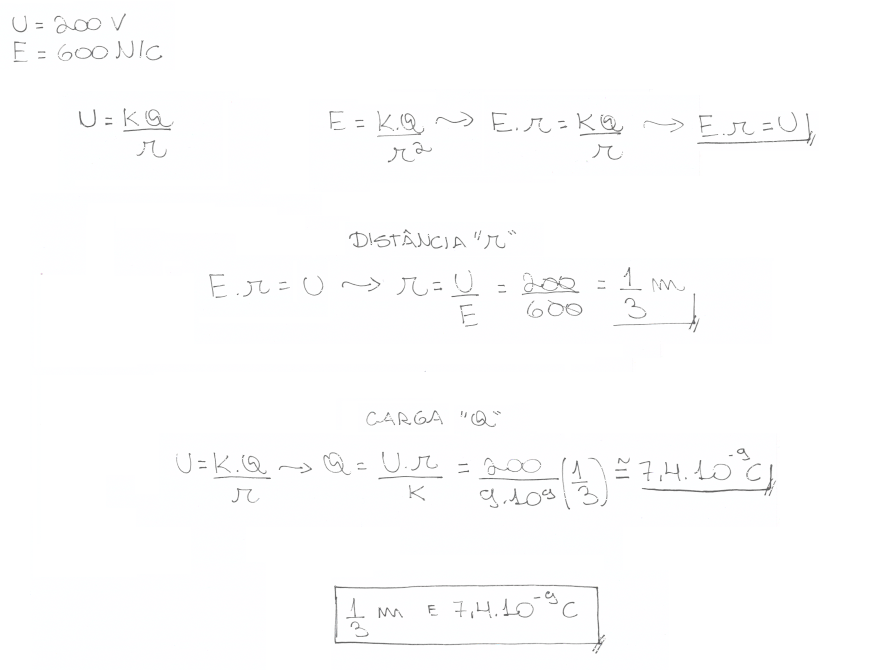 U = 200 V
E = 600 N/C
U = KQ/r    E = K.Q/r² ⤳ E.r = KQ/r ⤳ E.r = U
DISTÂNCIA "r"
E.r = U ⤳ r = U/E = 200/600 = 1/3 m
CARGA "Q"
U = K.Q/r ⤳ Q = U.r/K = 200/9.10⁹ (1/3) ≅ 7,4.10⁻⁹ C
1/3 m E 7,4.10⁻⁹ C